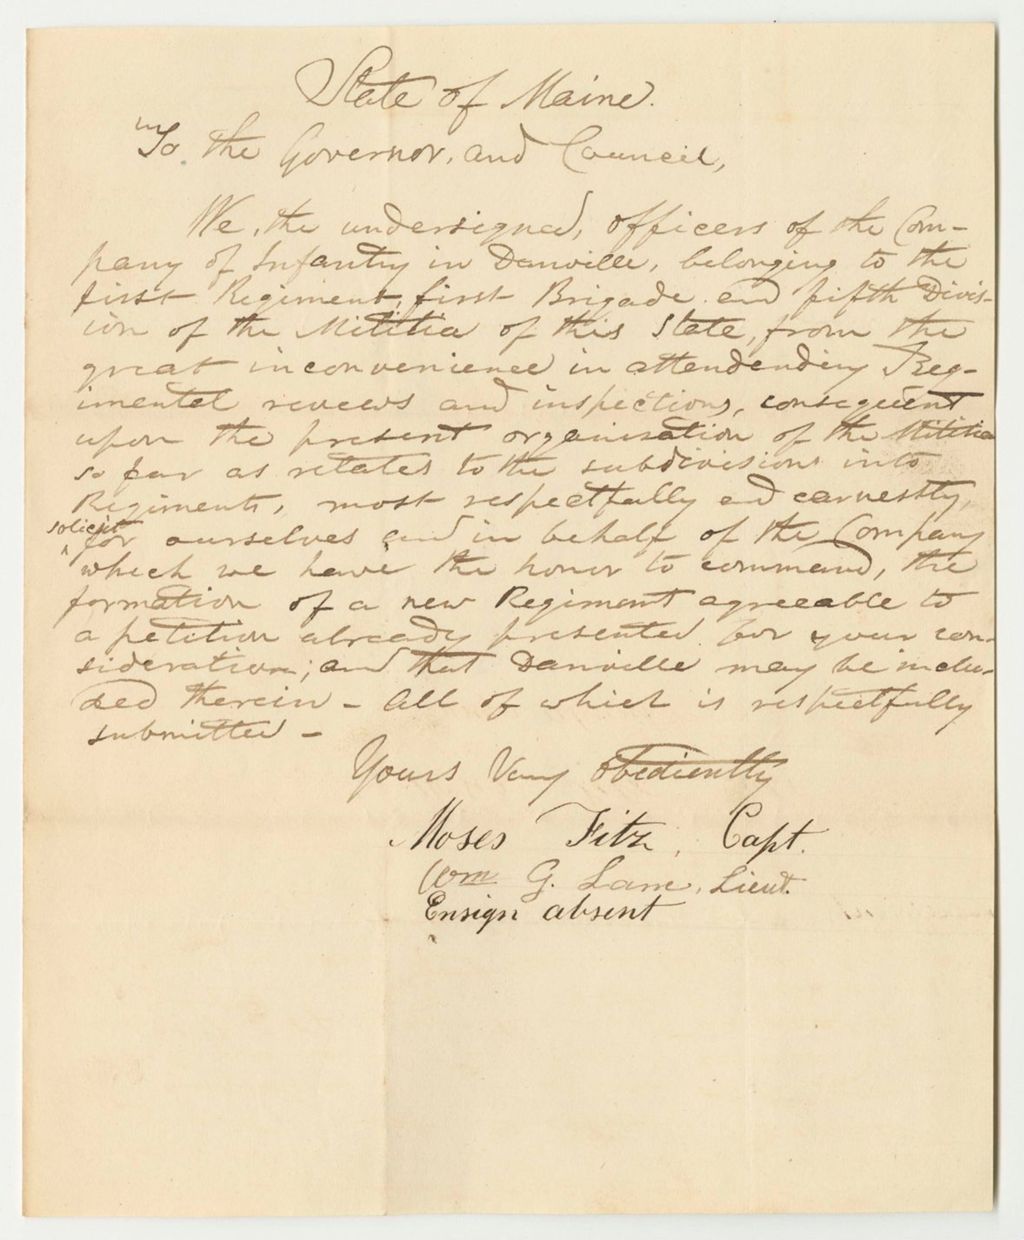 State of Maine.
To the Governor, and Council,
We, the undersigned, officers of the Com-
pany of Infantry in Danville, belonging to the
first Regiment, first Brigade and fifth Divis-
ion of the Militia of this State, from the
great inconvenience in attendending Reg-
imental reveews and inspections, consequent
upon the present organisation of the Militia
so far as relates to the subdivisions into
Regiments, most respectfully and earnestly,
solicit
^ for ourselves and in behalf of the Company
which we have the honor to command, the
formation of a new Regiment agreeable to
a petition already presented for your con-
sideration; and that Danville may be inclu-
ded therein - All of which is respectfully
submitted -
Yours Very obediently
Moses Fitz, Capt.
Wm G. Lane, Lieut.
Ensign absent